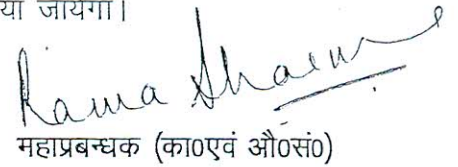 या जायेगा।
Rama Sharma
महाप्रबन्धक (का0एवं औ0सं0)